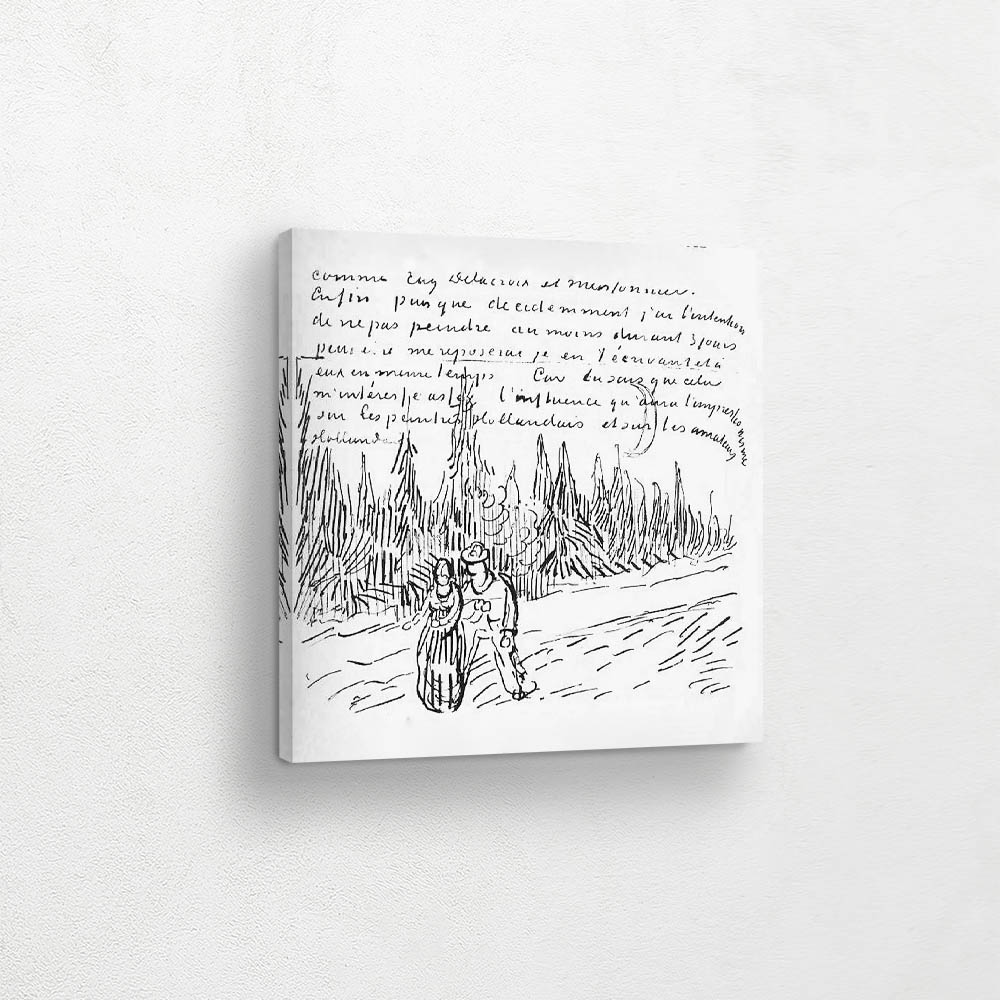 comme Eug Delacroix et Meissonnier.
Enfin puisque decidemment j'ai l'intention
de ne pas peindre au moins durant 3 jours
me reposerai je en t'écrivant et à
eux en meme temps Car tu sais que cela
m'intéresse assez l'influence qu'aura l'impressionisme
sur les peintres Hollandais et sur les amateurs
Hollandais